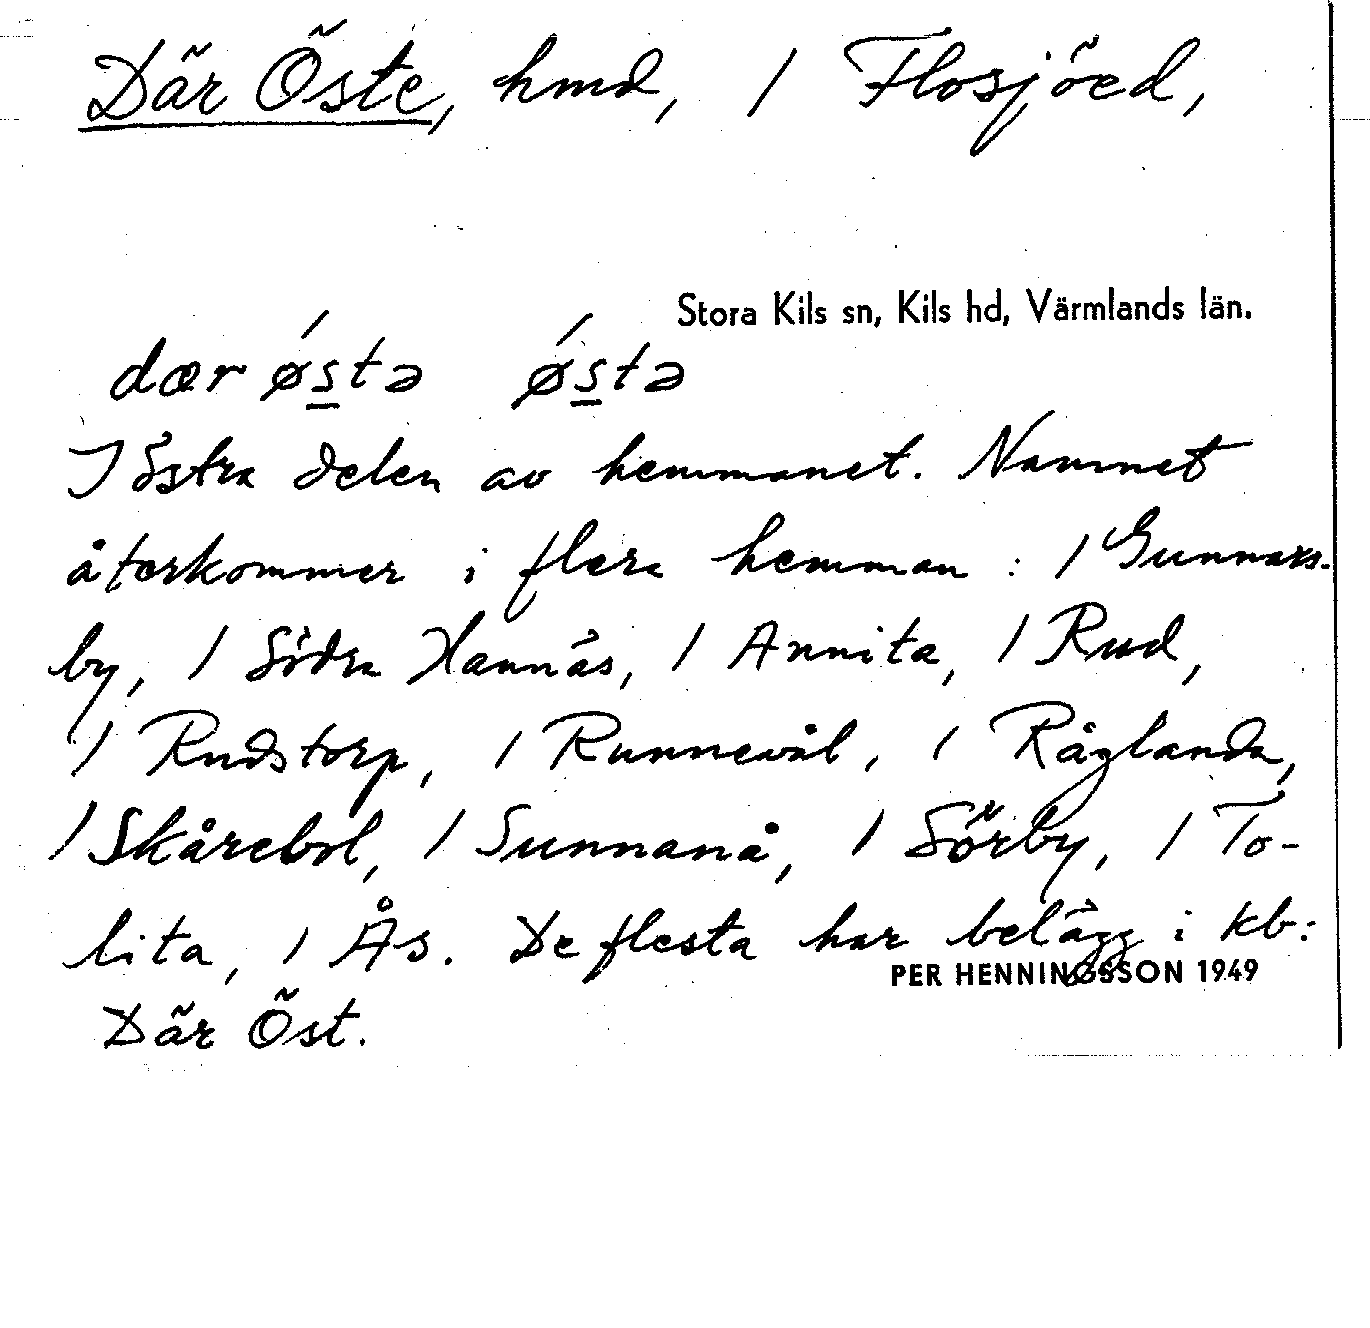 Där Öste, hmd, / Flosjöed,
Stora Kils sn, Kils hd, Värmlands län.
dær ǿs̲tə ǿs̲tə
I östra delen av hemmanet. Namnet
återkommer i flera hemman : / Gunnars-
by, / Södra Hannäs, / Annita, / Rud,
/ Rudstorp, / Runnevål, / Råglanda,
/ Skårebol, / Sunnanå, / Sörby, / To-
lita, / Ås. De flesta har belägg i kb:
PER HENNINGSSON 1949
Där Öst.